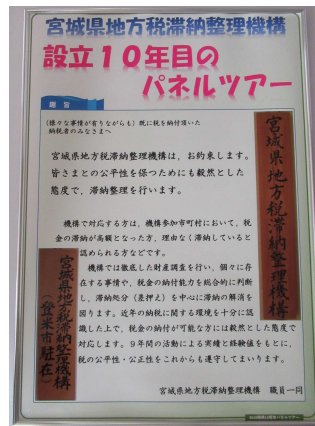 宮城県地方税滞納整理機構
設立１０年目の
パネルツアー
趣旨
(様々な事情が有りながらも) 既に税を納付頂いた
納税者のみなさまへ
宮城県地方税滞納整理機構は、お約束します。
皆さまとの公平性を保つためにも毅然とした
態度で、滞納整理を行います。
宮城県地方税滞納整理機構
機構で対応する方は、機構参加市町村において、税
金の滞納が高額となった方、理由なく滞納していると
認められる方などです。
機構では徹底した財産調査を行い、個々に存
する事情や、税金の納付能力を総合的に判断
し、滞納処分（差押え）を中心に滞納の解消を
図ります。近年の納税に関する環境を十分に認
識した上で、税金の納付が可能な方には毅然とした態度で
対応します。９年間の活動による実績と経験値をもとに、
税の公平性・公正性をこれからも遵守してまいります。
宮城県地方税滞納整理機構
(登米市駐在)
宮城県地方税滞納整理機構　職員一同